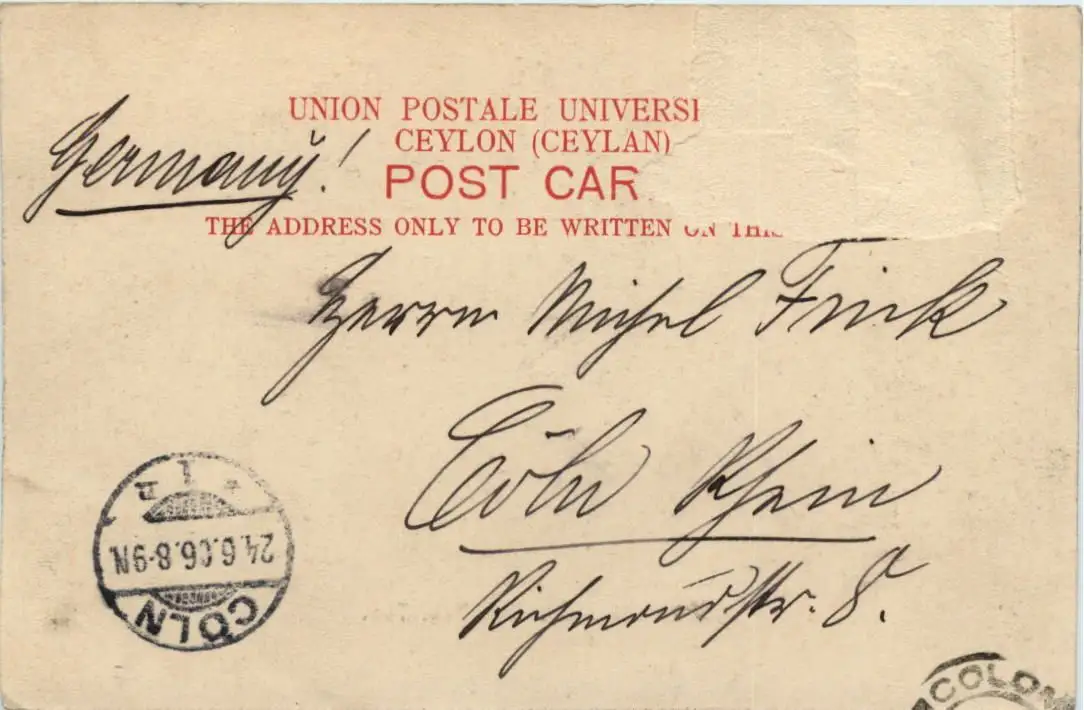 UNION POSTALE UNIVERS
CEYLON (CEYLAN)
POST CAR
THE ADDRESS ONLY TO BE WRITTEN ON THIS
Germany!
Herrn Michel Finck
Cöln Rhein
Richmondstr. 8.
24.6.06.8-9N
CÖLN
COLOM